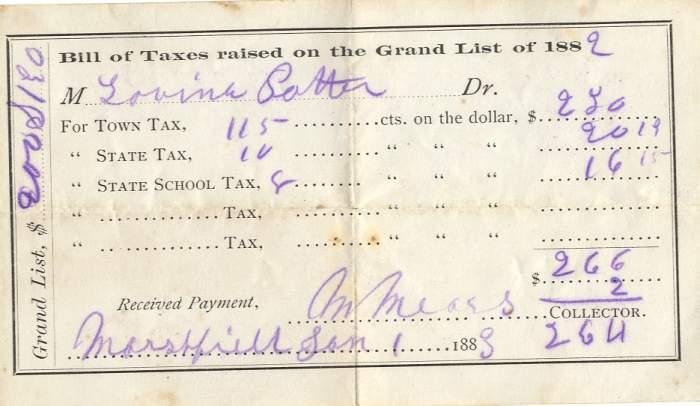 Bill of Taxes raised on the Grand List of 1882
M Lovina Potter Dr.
For Town Tax, 115 cts. on the dollar, $ 230
" State Tax, 10 " " " 20 19
" State School Tax, 8 " " " 16 15
" Tax, " " "
" Tax, " " "
$ 266
2
Received Payment, M Mears Collector.
Marshfield Jan 1 1883 264
Grand List, $